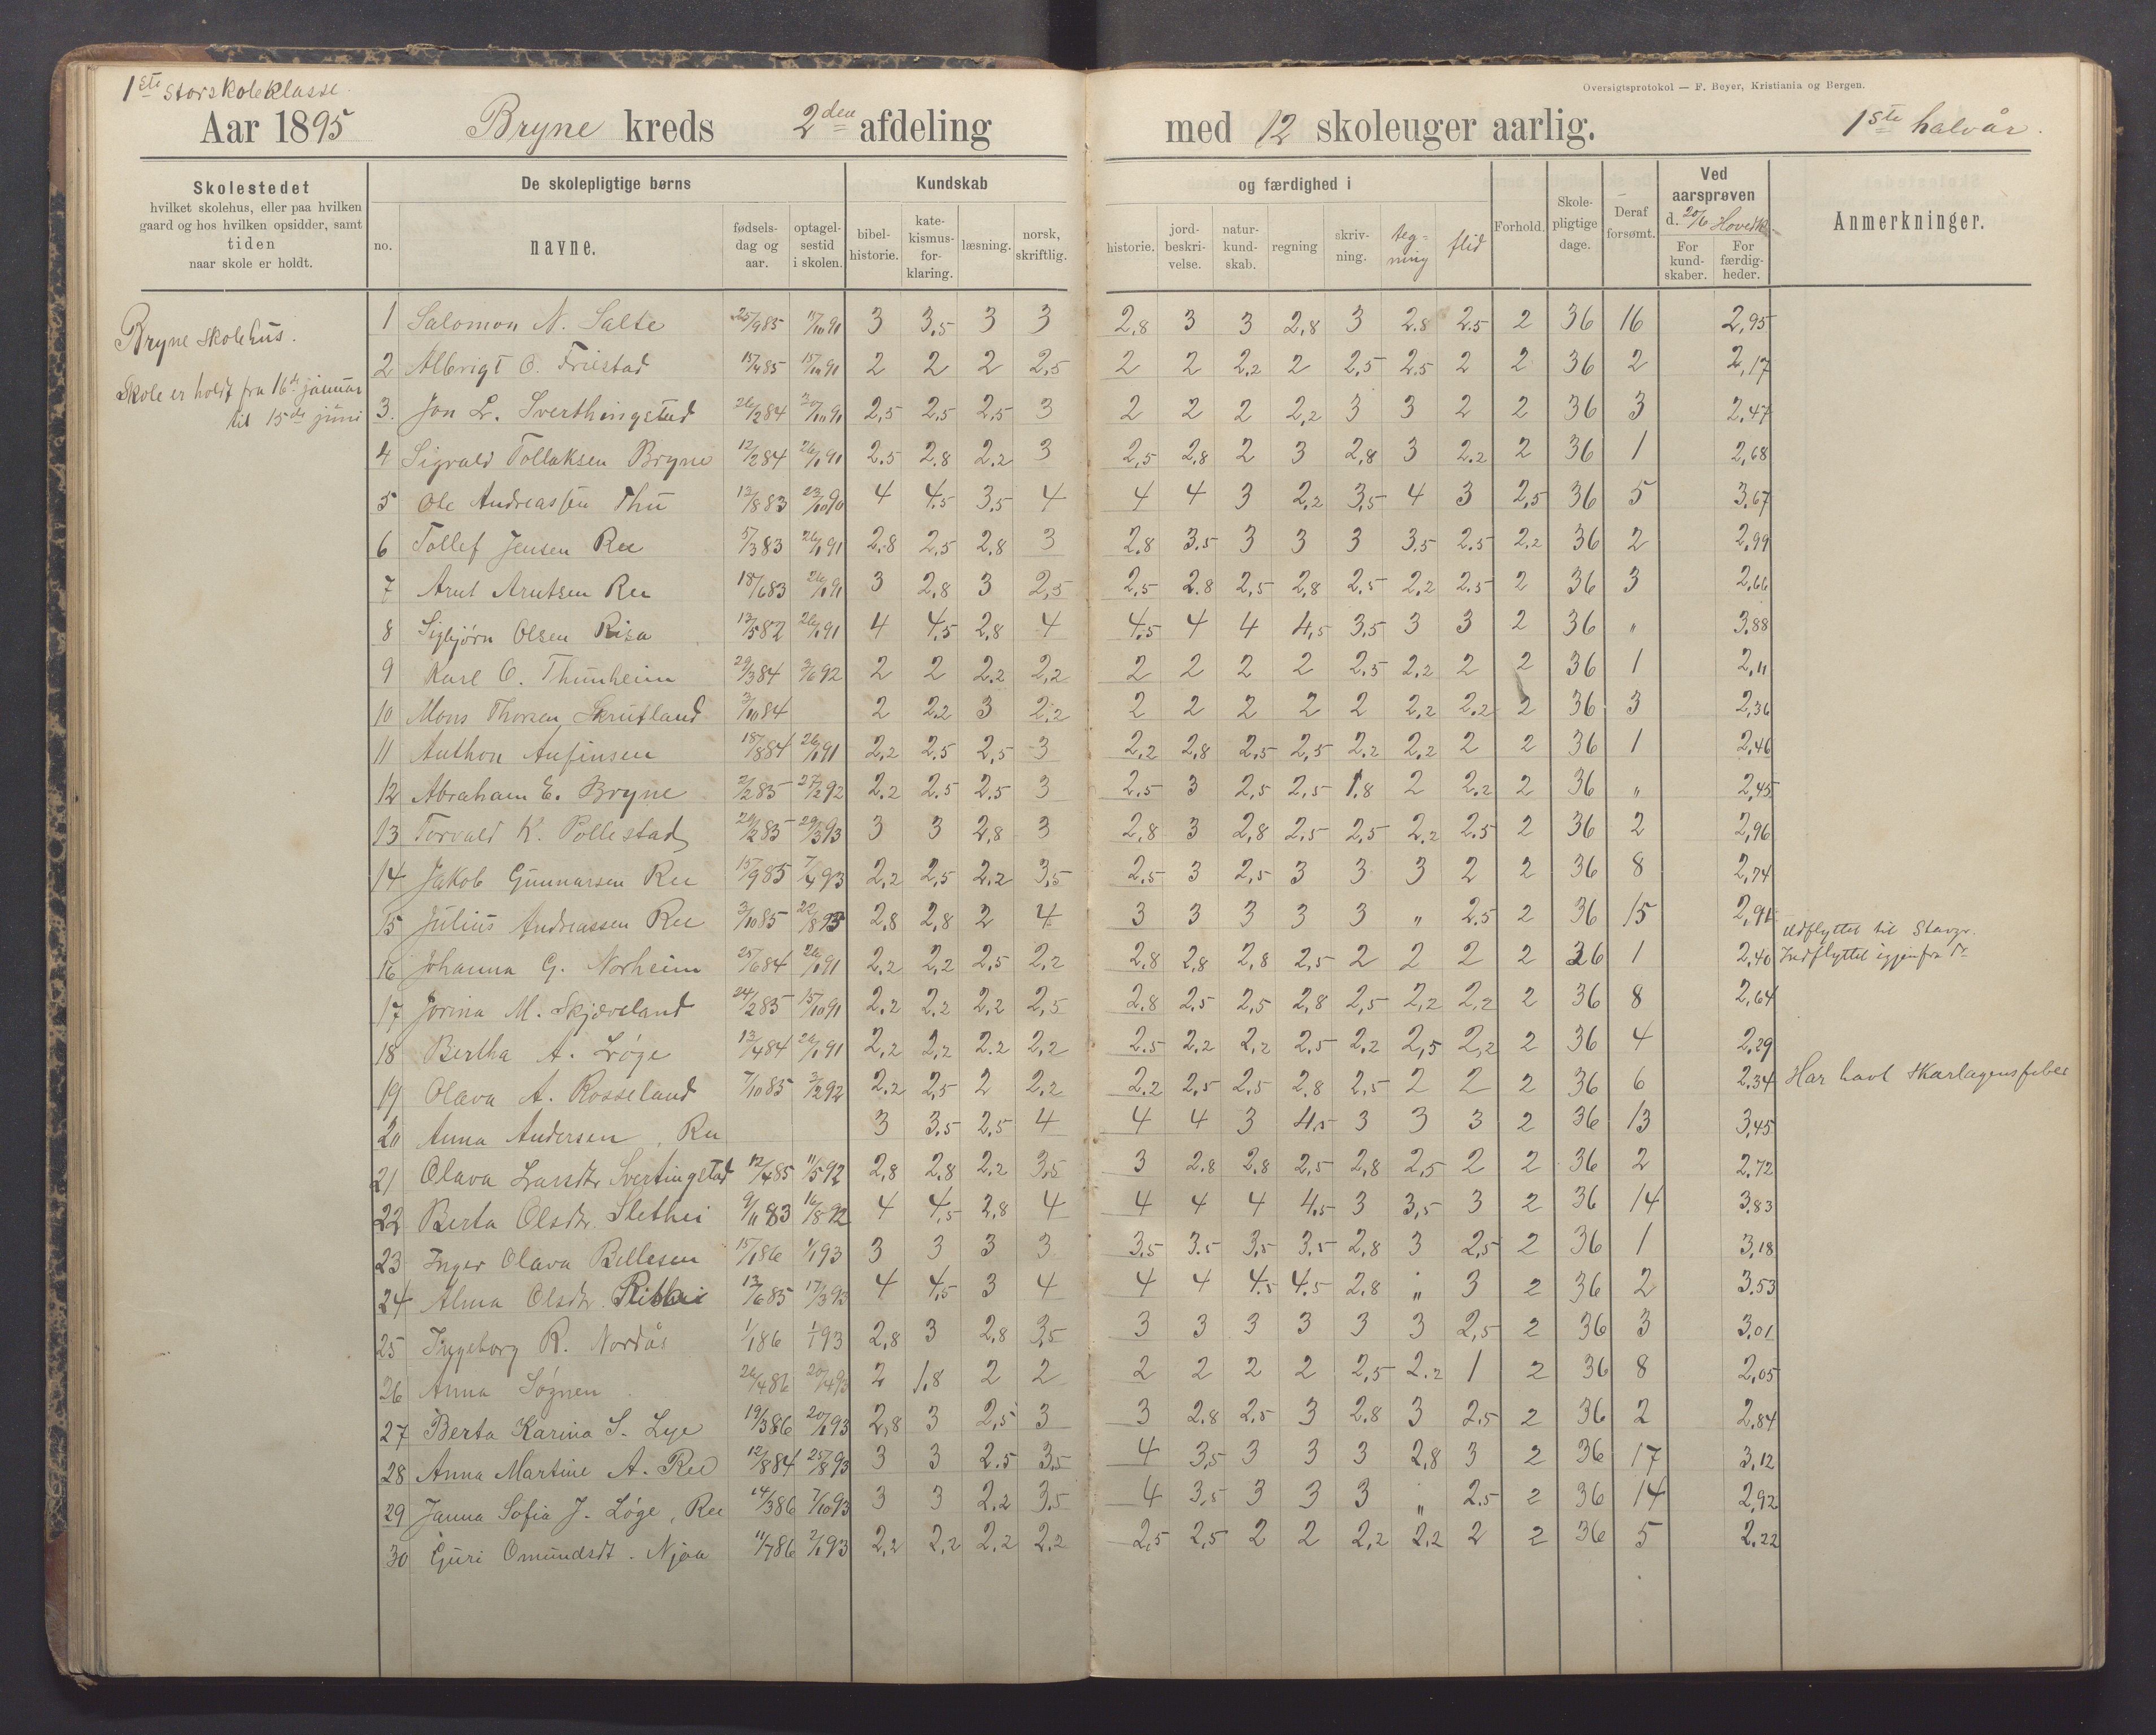 1ste storskoleklasse.
Oversigtsprotokol — F. Beyer, Kristiania og Bergen.
Aar 1895 Bryne kreds 2den afdeling med 12 skoleuger aarlig. 1ste halvår.
Skolestedet
hvilket skolehus, eller paa hvilken
gaard og hos hvilken opsidder, samt
tiden
naar skole er holdt.
De skolepligtige børns
no. navne. fødsels-dag og aar. optagel-sestid i skolen.
Kundskab og færdighed i
bibel-historie. kate-kismus-for-klaring. læsning. norsk, skriftlig. historie. jord-beskri-velse. natur-kund-skab. regning skriv-ning. teg-ning flid
Forhold. Skole-pligtige dage. Deraf forsømt.
Ved aarsprøven d. 20/6 Hovedk.
For kund-skaber. For færdig-heder.
Anmerkninger.
Bryne skolehus.
Skole er holdt fra 16de januar
til 15de juni
1 Salomon N. Salte 25/9 85 17/10 91 3 3,5 3 3 2,8 3 3 2,8 3 2.8 2.5 2 36 16 2,95
2 Albrigt O. Friestad 15/4 85 15/10 91 2 2 2 2,5 2 2 2.2 2 2,5 2.5 2 2 36 2 2,17
3. Jon L. Sverthingstad 26/2 84 20/10 91 2,5 2,5 2,5 3 2 2 2 2,2 3 3 2 2 36 3 2,47
4 Sigvald Tollaksen Bryne 12/2 84 26/1 91 2.5 2.8 2.2 3 2,5 2,8 2 3 2,8 3 2.2 2 36 1 2,68
5 Ole Andreassen Thu 13/8 83 23/10 90 4 4,5 3,5 4 4 4 3 2,2 3,5 4 3 2,5 36 5 3,67
6 Tollef Jensen Ree 5/3 83 26/1 91 2,8 2,5 2,8 3 2.8 3.5 3 3 3 3.5 2.5 2,2 36 2 2,99
7 Arnt Arntsen Ree 18/6 83 26/1 91 3 2,8 3 2,5 2,5 2.8 2,5 2,8 2,5 2,2 2.5 2 36 3 2,66
8 Sigbjørn Olsen Risa 13/5 82 26/1 91 4 4,5 2,8 4 4.5 4 4 4,5 3,5 3 3 2 36 " 3,88
9 Karl O. Thunheim 29/3 84 3/6 92 2 2 2.2 2,2 2 2 2 2 2.5 2,2 2 2 36 1 2,11
10 Mons Thorsen Skrutland 3/10 84 2 2.2 3 2,2 2 2 2 2 2 2,2 2.2 2 36 3 2,36
11 Anthon Anfinsen 18/8 84 26/1 91 2,2 2,5 2,5 3 2,2 2,8 2,5 2,5 2,2 2,2 2 2 36 1 2,46
12 Abraham E. Bryne 2/2 85 27/2 92 2.2 2.5 2.5 3 2.5 3 2,5 2,5 1.8 2 2.2 2 36 " 2,45
13 Torvald K. Pollestad 20/2 85 29/3 93 3 3 2,8 3 2,8 3 2,8 2,5 2,5 2,2 2.5 2 36 2 2,96
14 Jakob Gunnarsen Ree 15/9 85 7/4 93 2,2 2,5 2.2 3,5 2.5 3 2,5 3 3 3 2 2 36 8 2,74
15 Julius Andreassen Ree 3/10 85 22/8 93 2,8 2,8 2 4 3 3 3 3 3 " 2.5 2 36 15 2,91 Udflyttet til Stavgr.
16 Johanna G. Norheim 25/6 84 26/1 91 2,2 2,2 2,5 2,2 2,8 2,8 2,8 2,5 2 2 2 2 36 1 2,40 Indflyttet igjen fra do
17 Jorina M. Skjæveland 24/2 85 15/10 91 2,2 2,2 2,2 2,5 2.8 2,5 2,5 2,8 2,5 2,2 2,2 2 36 8 2,64
18 Bertha A. Løge 13/4 84 26/1 91 2,2 2,2 2.2 2,2 2.5 2.2 2,2 2.5 2.2 2,5 2,2 2 36 4 2,29
19 Olava A. Rosseland 7/10 85 3/2 92 2.2 2,5 2 2.2 2.2 2,5 2.5 2.8 2,5 2 2 2 36 6 2.34 Har havt Skarlagensfeber
20 Anna Andersen, Ree 3 3.5 2,5 4 4 4 3 4,5 3 3 3 2 36 13 3,45
21 Olava Larsdtr Svertingstad 12/4 85 11/5 92 2,8 2.8 2.2 3,5 3 2.8 2.8 2,5 2,8 2,5 2 2 36 2 2,72
22 Berta Olsdtr. Slethei 9/11 83 16/8 92 4 4,5 2,8 4 4 4 4 4,5 3 3,5 3 2 36 14 3.83
23 Inger Olava Bellesen 15/1 86 1/1 93 3 3 3 3 3.5 3.5 3,5 3.5 2,8 3 2,5 2 36 1 3,18
24 Alma Olsdtr. 13/6 85 17/3 93 4 4,5 3 4 4 4 4.5 4.5 2.8 " 3 2 36 2 3.53
25 Ingeborg R. Nordås 1/1 86 1/1 93 2,8 3 2,8 3,5 3 3 3 3 3 3 2,5 2 36 3 3,01
26 Anna Søgnen 26/4 86 20/4 93 2 1,8 2 2 2 2 2 2 2,5 2.2 1 2 36 8 2,05
27 Berta Karina S. Lye 19/3 86 20/1 93 2,8 3 2,5 3 3 2.8 2,5 3 2.8 3 2.5 2 36 2 2,84
28 Anna Martine A. Ree 12/8 84 25/8 93 3 3 2.5 3,5 4 3,5 3 3 3 2,8 3 2 36 17 3,12
29 Janna Sofia J. Løge, Ree 14/3 86 7/10 93 3 3 2.2 3,5 4 3,5 3 3 3 " 2.5 2 36 14 2,92
30 Guri Omundsdt. Njaa 11/7 86 2/1 93 2,2 2,2 2,2 2,2 2,5 2,5 2 2 2,2 2,2 2 2 36 5 2,22